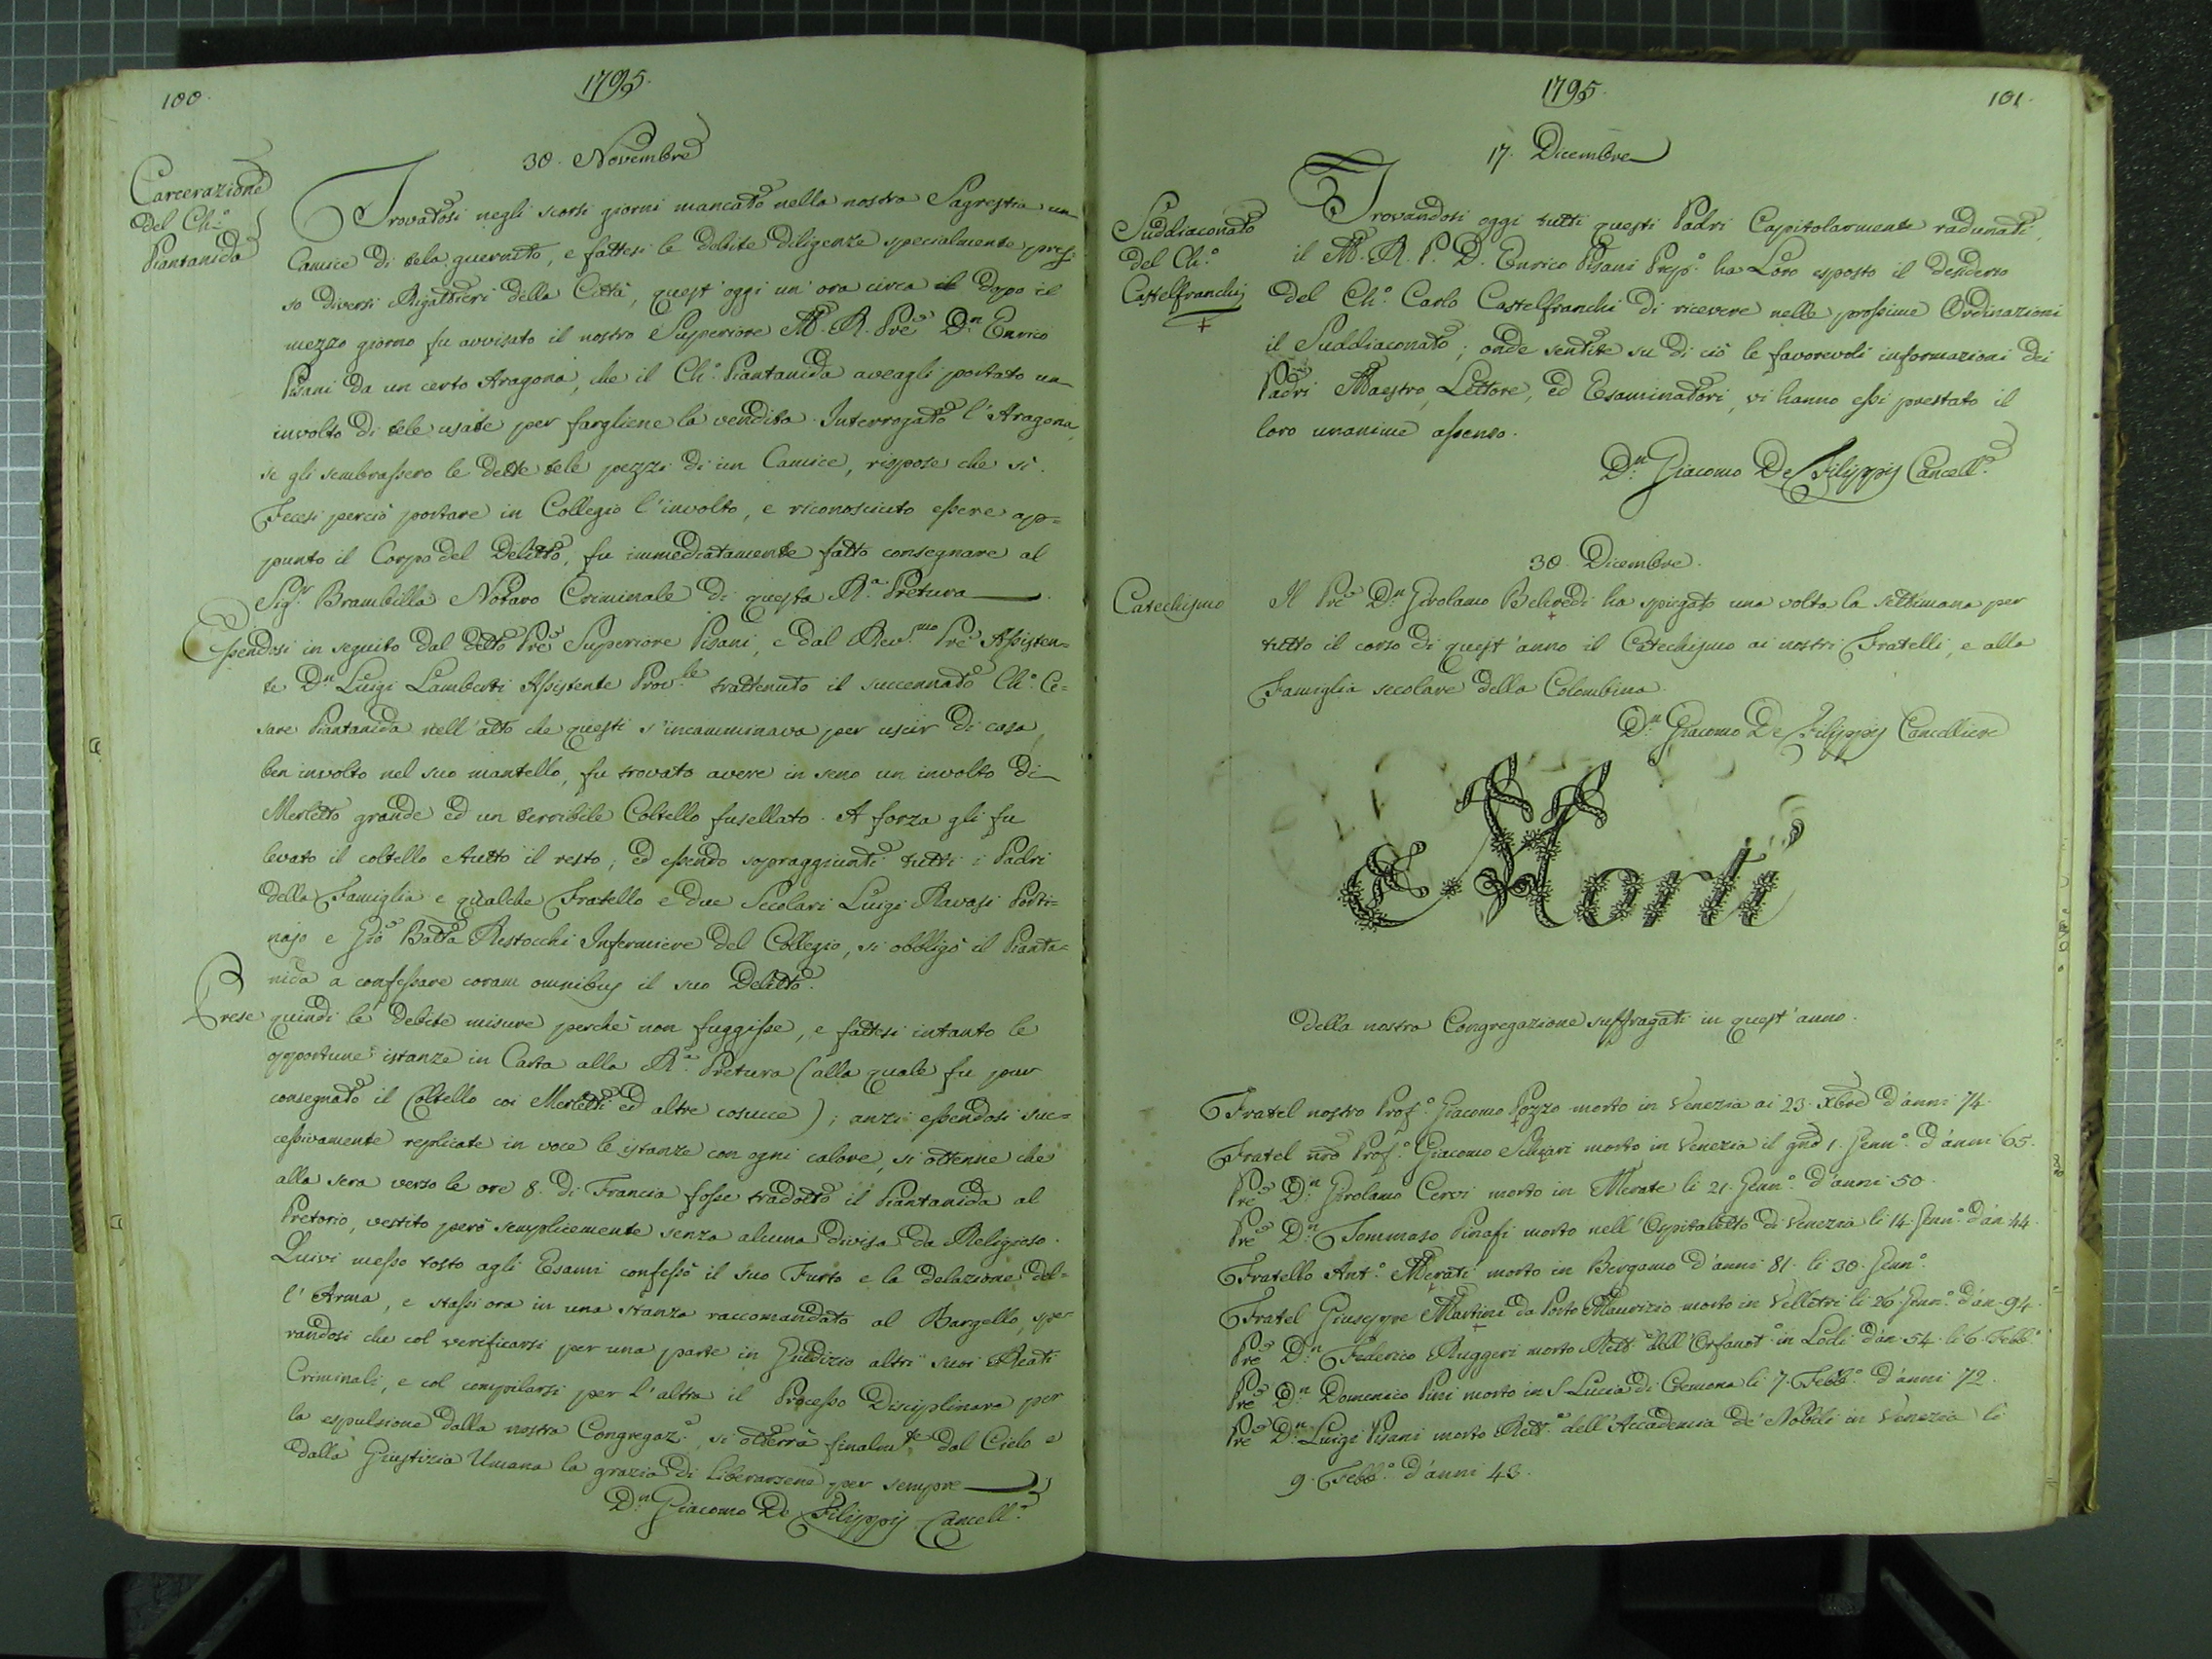 100.
1795.
30. Novembre
Carcerazione
del Ch.º
Piantanida
Trovatosi negli scorsi giorni mancato nella nostra Sagrestia un
Camice di tela guernito, e fattesi le debite diligenze specialmente pres-
so diversi Rigattieri della Città, quest'oggi un'ora circa il dopo il
mezzo giorno fu avvisato il nostro Superiore M. R. Pre Dn Enrico
Pisani da un certo Aragona, che il Ch.º Piantanida aveagli portato un
involto di tele usate per fargliene la vendita. Interrogato l'Aragona,
se gli sembrassero le dette tele pezzi di un Camice, rispose che sì.
Fecesi perciò portare in Collegio l'involto, e riconosciuto essere ap=
punto il Corpo del Delitto, fu immediatamente fatto consegnare al
Sig.r Brambilla Notaro Criminale di questa R.a Pretura.
Essendosi in seguito dal detto Pre Superiore Pisani, e dal Rev.mo Pre Assisten=
te Dn Luigi Lamberti Assistente Prov.le trattenuto il succennato Ch.º Ce=
sare Piantanida nell'atto che questi s'incamminava per uscir di casa
ben involto nel suo mantello, fu trovato avere in seno un involto di
Merletto grande ed un terribile Coltello fusellato. A forza gli fu
levato il coltello e tutto il resto; ed essendo sopraggiunti tutti i Padri
della Famiglia e qualche Fratello e due Secolari Luigi Ravasi Porti=
najo e Gio Batta Restocchi Infermiere del Collegio, si obbligò il Pianta=
nida a confessare coram omnibus il suo Delitto.
Prese quindi le debite misure perchè non fuggisse, e fattesi intanto le
opportune istanze in Carta alla R.a Pretura (alla quale fu pur
consegnato il Coltello coi Merletti ed altre cosucce); anzi essendosi suc=
cessivamente replicate in voce le istanze con ogni calore, si ottenne che
alla sera verso le ore 8. di Francia fosse tradotto il Piantanida al
Pretorio, vestito però semplicemente senza alcuna divisa da Religioso.
Quivi messo tosto agli Esami confessò il suo Furto e la delazione del=
l'Arma, e stassi ora in una stanza raccomandato al Bargello, spe=
randosi che col verificarsi per una parte in Giudizio altri suoi Reati
Criminali, e col compilarsi per l'altra il Processo Disciplinare per
la espulsione dalla nostra Congregaz.e, si otterrà finalm.te dal Cielo e
dalla Giustizia Umana la grazia di liberarsene per sempre
Dn Giacomo De Filippis Cancell.e
1795.
101.
17. Dicembre
Suddiaconato
del Ch.º
Castelfranchi
Trovandosi oggi tutti questi Padri Capitolarmente radunati,
il M. R. P. D. Enrico Pisani Prep.º ha Loro esposto il desiderio
del Ch.º Carlo Castelfranchi di ricevere nelle prossime Ordinazioni
il Suddiaconato; onde sentite su di ciò le favorevoli informazioni dei
Padri Maestro, Lettore, ed Esaminatori, vi hanno essi prestato il
loro unanime assenso.
Dn Giacomo De Filippis Cancell.e
30. Dicembre.
Catechismo
Il Pre Dn Girolamo Belvedi ha spiegato una volta la settimana per
tutto il corso di quest'anno il Catechismo ai nostri Fratelli, e alla
Famiglia secolare della Colombina.
Dn Giacomo De Filippis Cancelliere
Morti
della nostra Congregazione suffragati in quest'anno.
Fratel nostro Prof.º Giacomo Pozzo morto in Venezia ai 23. Xbre d'anni 74.
Fratel nro Prof.º Giacomo morto in Venezia il 1. Genn.º d'anni 65.
Pre Dn Girolamo Cervi morto in Merate li 21. Genn.º d'anni 50.
Pre Dn Tommaso Pinafi morto nell'Ospitaletto di Venezia li 14. Genn.º d'an. 44.
Fratello Ant.º Merati morto in Bergamo d'anni 81. li 30. Genn.º
Fratel Giuseppe Martini da Porto Maurizio morto in Velletri li 26. Genn.º d'an. 94.
Pre Dn Federico Ruggeri morto Rett.e dell'Orfanot.º in Lodi d'an. 54. li 6. Febb.º
Pre Dn Domenico Pini morto in S. Lucia di Cremona li 7. Febb.º d'anni 72.
Pre Dn Luigi Pisani morto Rett.e dell'Accademia de' Nobili in Venezia li
9. Febb.º d'anni 43.